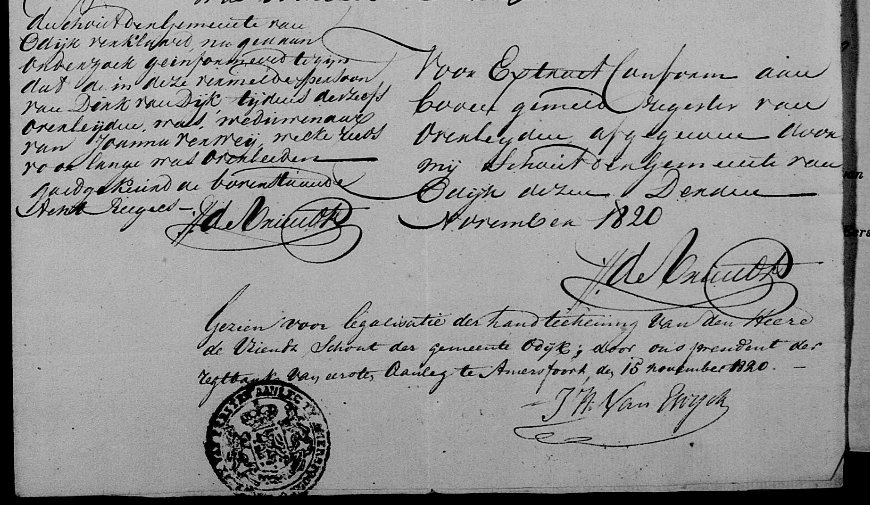 de Schout der Gemeente van
Odijk verklaard, na gedaan
onderzoek geinformeerd te zijn
dat de in deze vermelde persoon
van Dirk van Dijk tijdens deszelfs
overleyden, was weduwenaar
van Joanna verweij, welke reeds
voor lange was overleeden
goedgekeurd de bovenstaande
acht Regels
JJ de Vriendt
Voor Extract Conform aan
boven gemeld Register van
overleyden afgegeven door
mij Schout der Gemeente van
Odijk dezen Derden
November 1820
JJ. de Vriendt
Gezien voor legalisatie der handteekening van den Heere
de Vriendt Schout der gemeente Odijk; door ons president der
regtbank van eersten Aanleg te Amersfoort den 15 november 1820.
J H. Van Ewyck